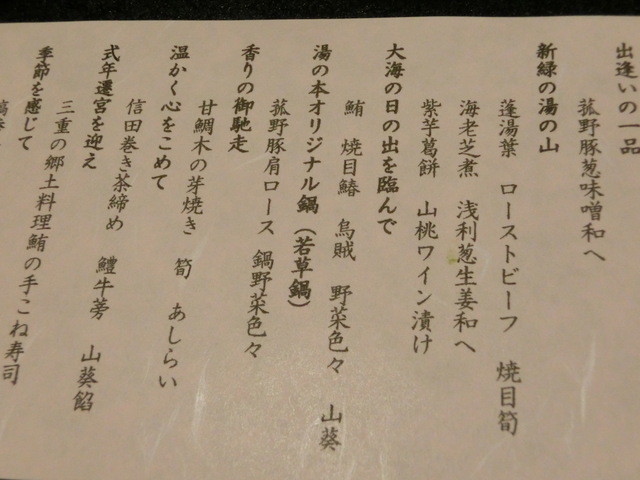 出逢いの一品
菰野豚葱味噌和へ
新緑の湯の山
蓬湯葉 ローストビーフ 焼目筍
海老芝煮 浅利葱生姜和へ
紫芋葛餅 山桃ワイン漬け
大海の日の出を臨んで
鮪 焼目鰆 烏賊 野菜色々 山葵
湯の本オリジナル鍋(若草鍋)
菰野豚肩ロース 鍋野菜色々
香りの御馳走
甘鯛木の芽焼き 筍 あしらい
温かく心をこめて
信田巻き茶締め 鱧牛蒡 山葵餡
式年遷宮を迎え
三重の郷土料理鮪の手こね寿司
季節を感じて